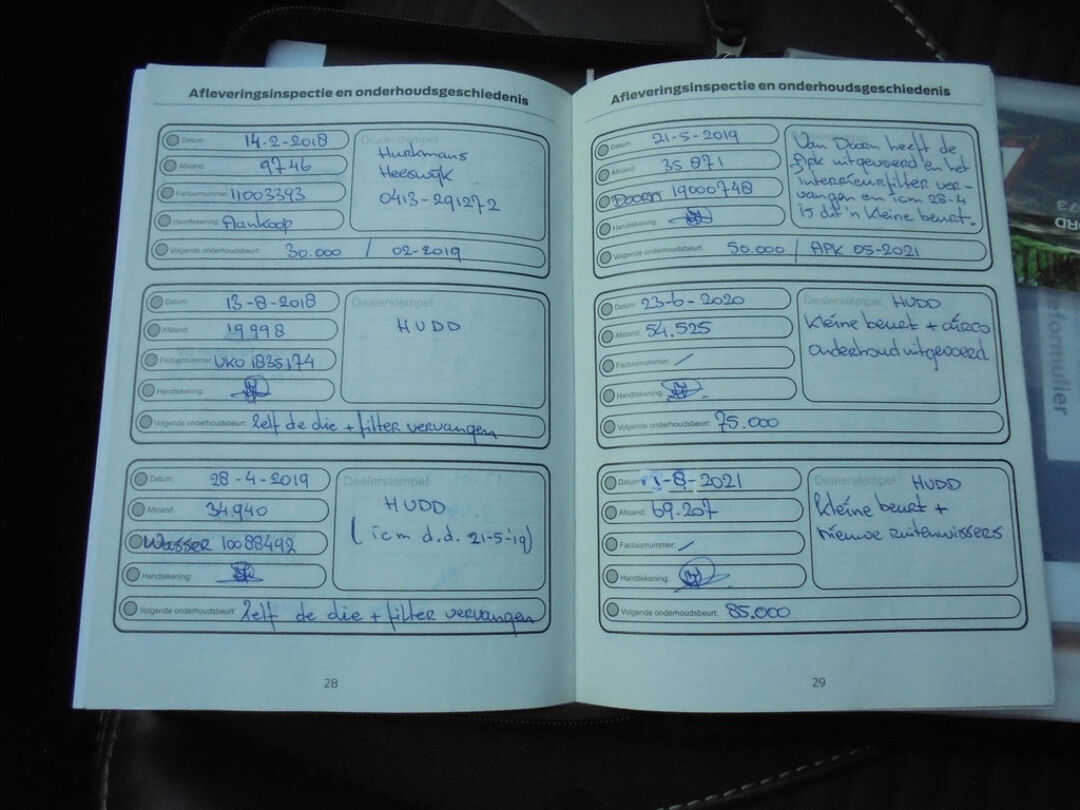 Afleveringsinspectie en onderhoudsgeschiedenis
Datum: 14-2-2018
Afstand: 9746
Factuurnummer: 11003393
Handtekening: Aankoop
Dealerstempel
Hurkmans
Heeswijk
0413-291272
Volgende onderhoudsbeurt: 30.000 / 02-2019
Datum: 13-8-2018
Afstand: 19998
Factuurnummer: VKO 1835174
Handtekening:
Dealerstempel
HUDD
Volgende onderhoudsbeurt: Zelf de olie + filter vervangen
Datum: 28-4-2019
Afstand: 34.940
Wasser 10088492
Handtekening:
Dealerstempel
HUDD
(icm d.d. 21-5-19)
Volgende onderhoudsbeurt: Zelf de olie + filter vervangen
28
Afleveringsinspectie en onderhoudsgeschiedenis
Datum: 21-5-2019
Afstand: 35 871
Doorn 19000748
Handtekening:
Van Doorn heeft de
Apk uitgevoerd en het
interrieurfilter ver-
vangen en icm 28-4
is dit 'n kleine beurt.
Volgende onderhoudsbeurt: 50.000 / APK 05-2021
Datum: 23-6-2020
Afstand: 54.525
Factuurnummer: /
Handtekening:
Dealerstempel HUDD
Kleine beurt + airco
onderhoud uitgevoerd
Volgende onderhoudsbeurt: 75.000
Datum: 1-8-2021
Afstand: 69.207
Factuurnummer: /
Handtekening:
Dealerstempel HUDD
Kleine beurt +
nieuwe ruitenwissers
Volgende onderhoudsbeurt: 85.000
29
formulier